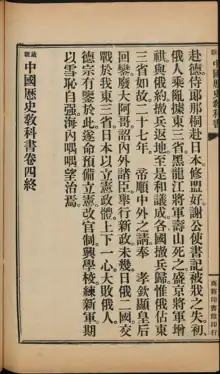 赴德侍郎那桐赴日本修盟好謝公使書記被戕之失初
俄人乘亂據東三省黑龍江將軍壽山死之盛京將軍增
祺與俄約撤兵返地至是和議成各國撤兵歸惟俄佔東
三省如故二十七年　帝順中外之請奉　孝欽顯皇后
回鑾廢大阿哥詔內外諸臣舉行新政未幾日俄二國交
戰於我東三省日本以立憲政體上下一心大敗俄人
德宗有鑒於此遂命預備立憲改官制興學校練新軍期
以雪恥自强海內喁喁望治焉
中國歷史教科書卷四終
中國歷史教科書
商務印書館印行